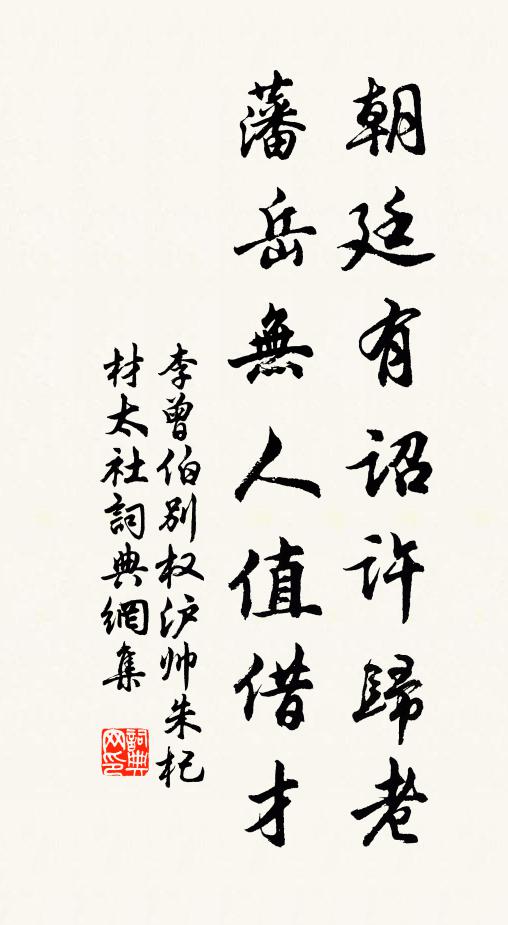 朝廷有詔許歸老
藩岳無人值借才
李曾伯別权沪帅朱杞
材太社詞典網集
詞典网印